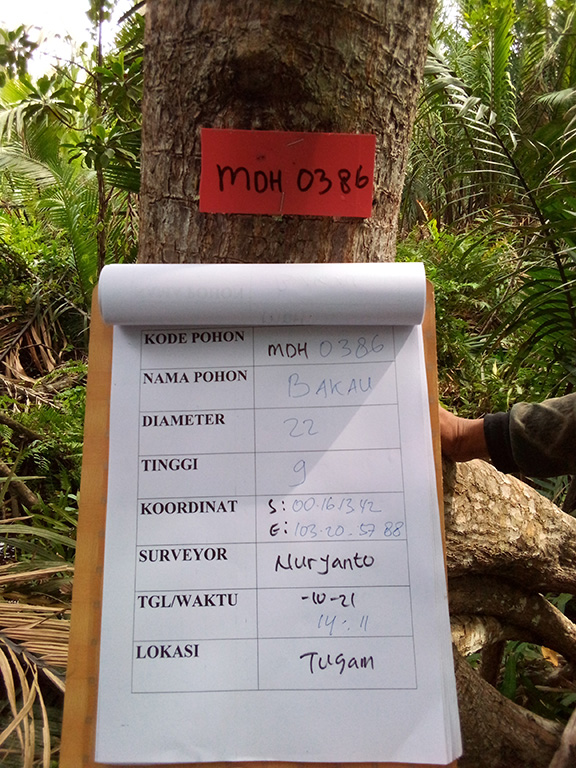 MDH 0386
KODE POHON MDH 0386
NAMA POHON BAKAU
DIAMETER 22
TINGGI 9
KOORDINAT S: 00.16.13.42
E: 103.20.57 88
SURVEYOR Nuryanto
TGL/WAKTU -10-21
14:11
LOKASI Tugam